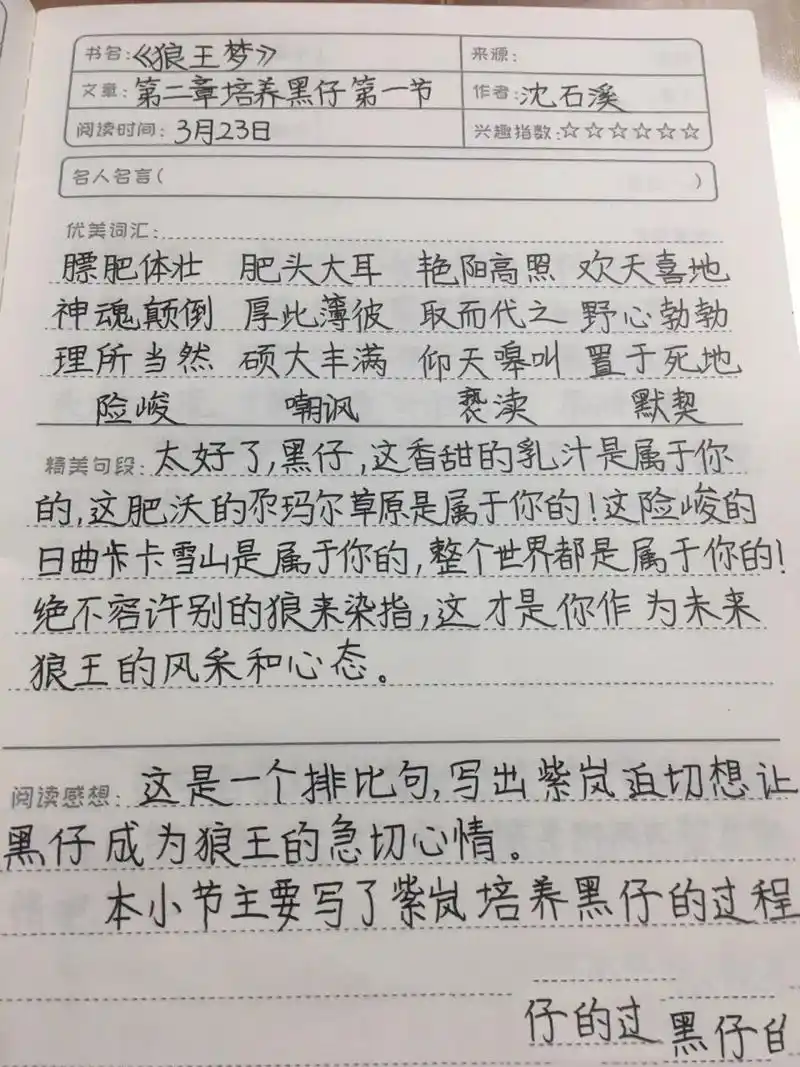 书名:《狼王梦》 来源:
文章:第二章培养黑仔第一节 作者:沈石溪
阅读时间:3月23日 兴趣指数:☆☆☆☆☆☆
名人名言( )
优美词汇:
膘肥体壮 肥头大耳 艳阳高照 欢天喜地
神魂颠倒 厚此薄彼 取而代之 野心勃勃
理所当然 硕大丰满 仰天嗥叫 置于死地
险峻 嘲讽 亵渎 默契
精美句段:太好了,黑仔,这香甜的乳汁是属于你
的,这肥沃的尕玛尔草原是属于你的!这险峻的
日曲卡雪山是属于你的,整个世界都是属于你的!
绝不容许别的狼来染指,这才是你作为未来
狼王的风采和心态。
阅读感想:这是一个排比句,写出紫岚迫切想让
黑仔成为狼王的急切心情。
本小节主要写了紫岚培养黑仔的过程
仔的过 黑仔的